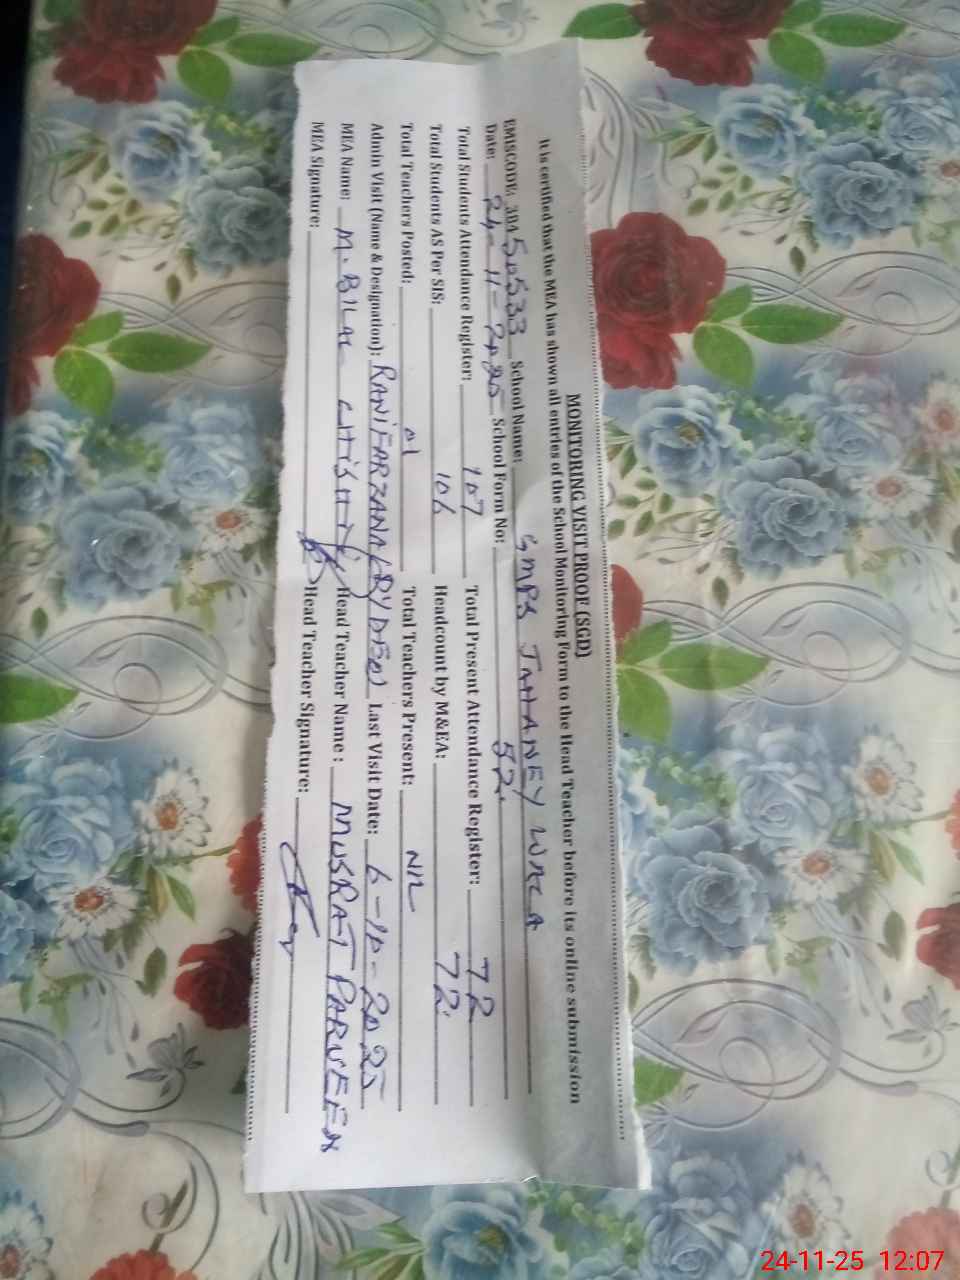 MONITORING VISIT PROOF (SGD)
It is certified that the MEA has shown all entries of the School Monitoring Form to the Head Teacher before its online submission
EMISCODE: 384 50533 School Name: GMPS JAHANEY WALA
Date: 24-11-2025 School Form No: 52.
Total Students Attendance Register: 107 Total Present Attendance Register: 72
Total Students AS Per SIS: 106 Headcount by M&EA: 72.
Total Teachers Posted: 01 Total Teachers Present: NIL
Admin Visit (Name & Designation): RANI FARZANA (DY DEO) Last Visit Date: 6-10-2025
MEA Name: M. BILAL CHISHTI Head Teacher Name : MUSRAT PARVEEN
MEA Signature: Head Teacher Signature:
24-11-25 12:07